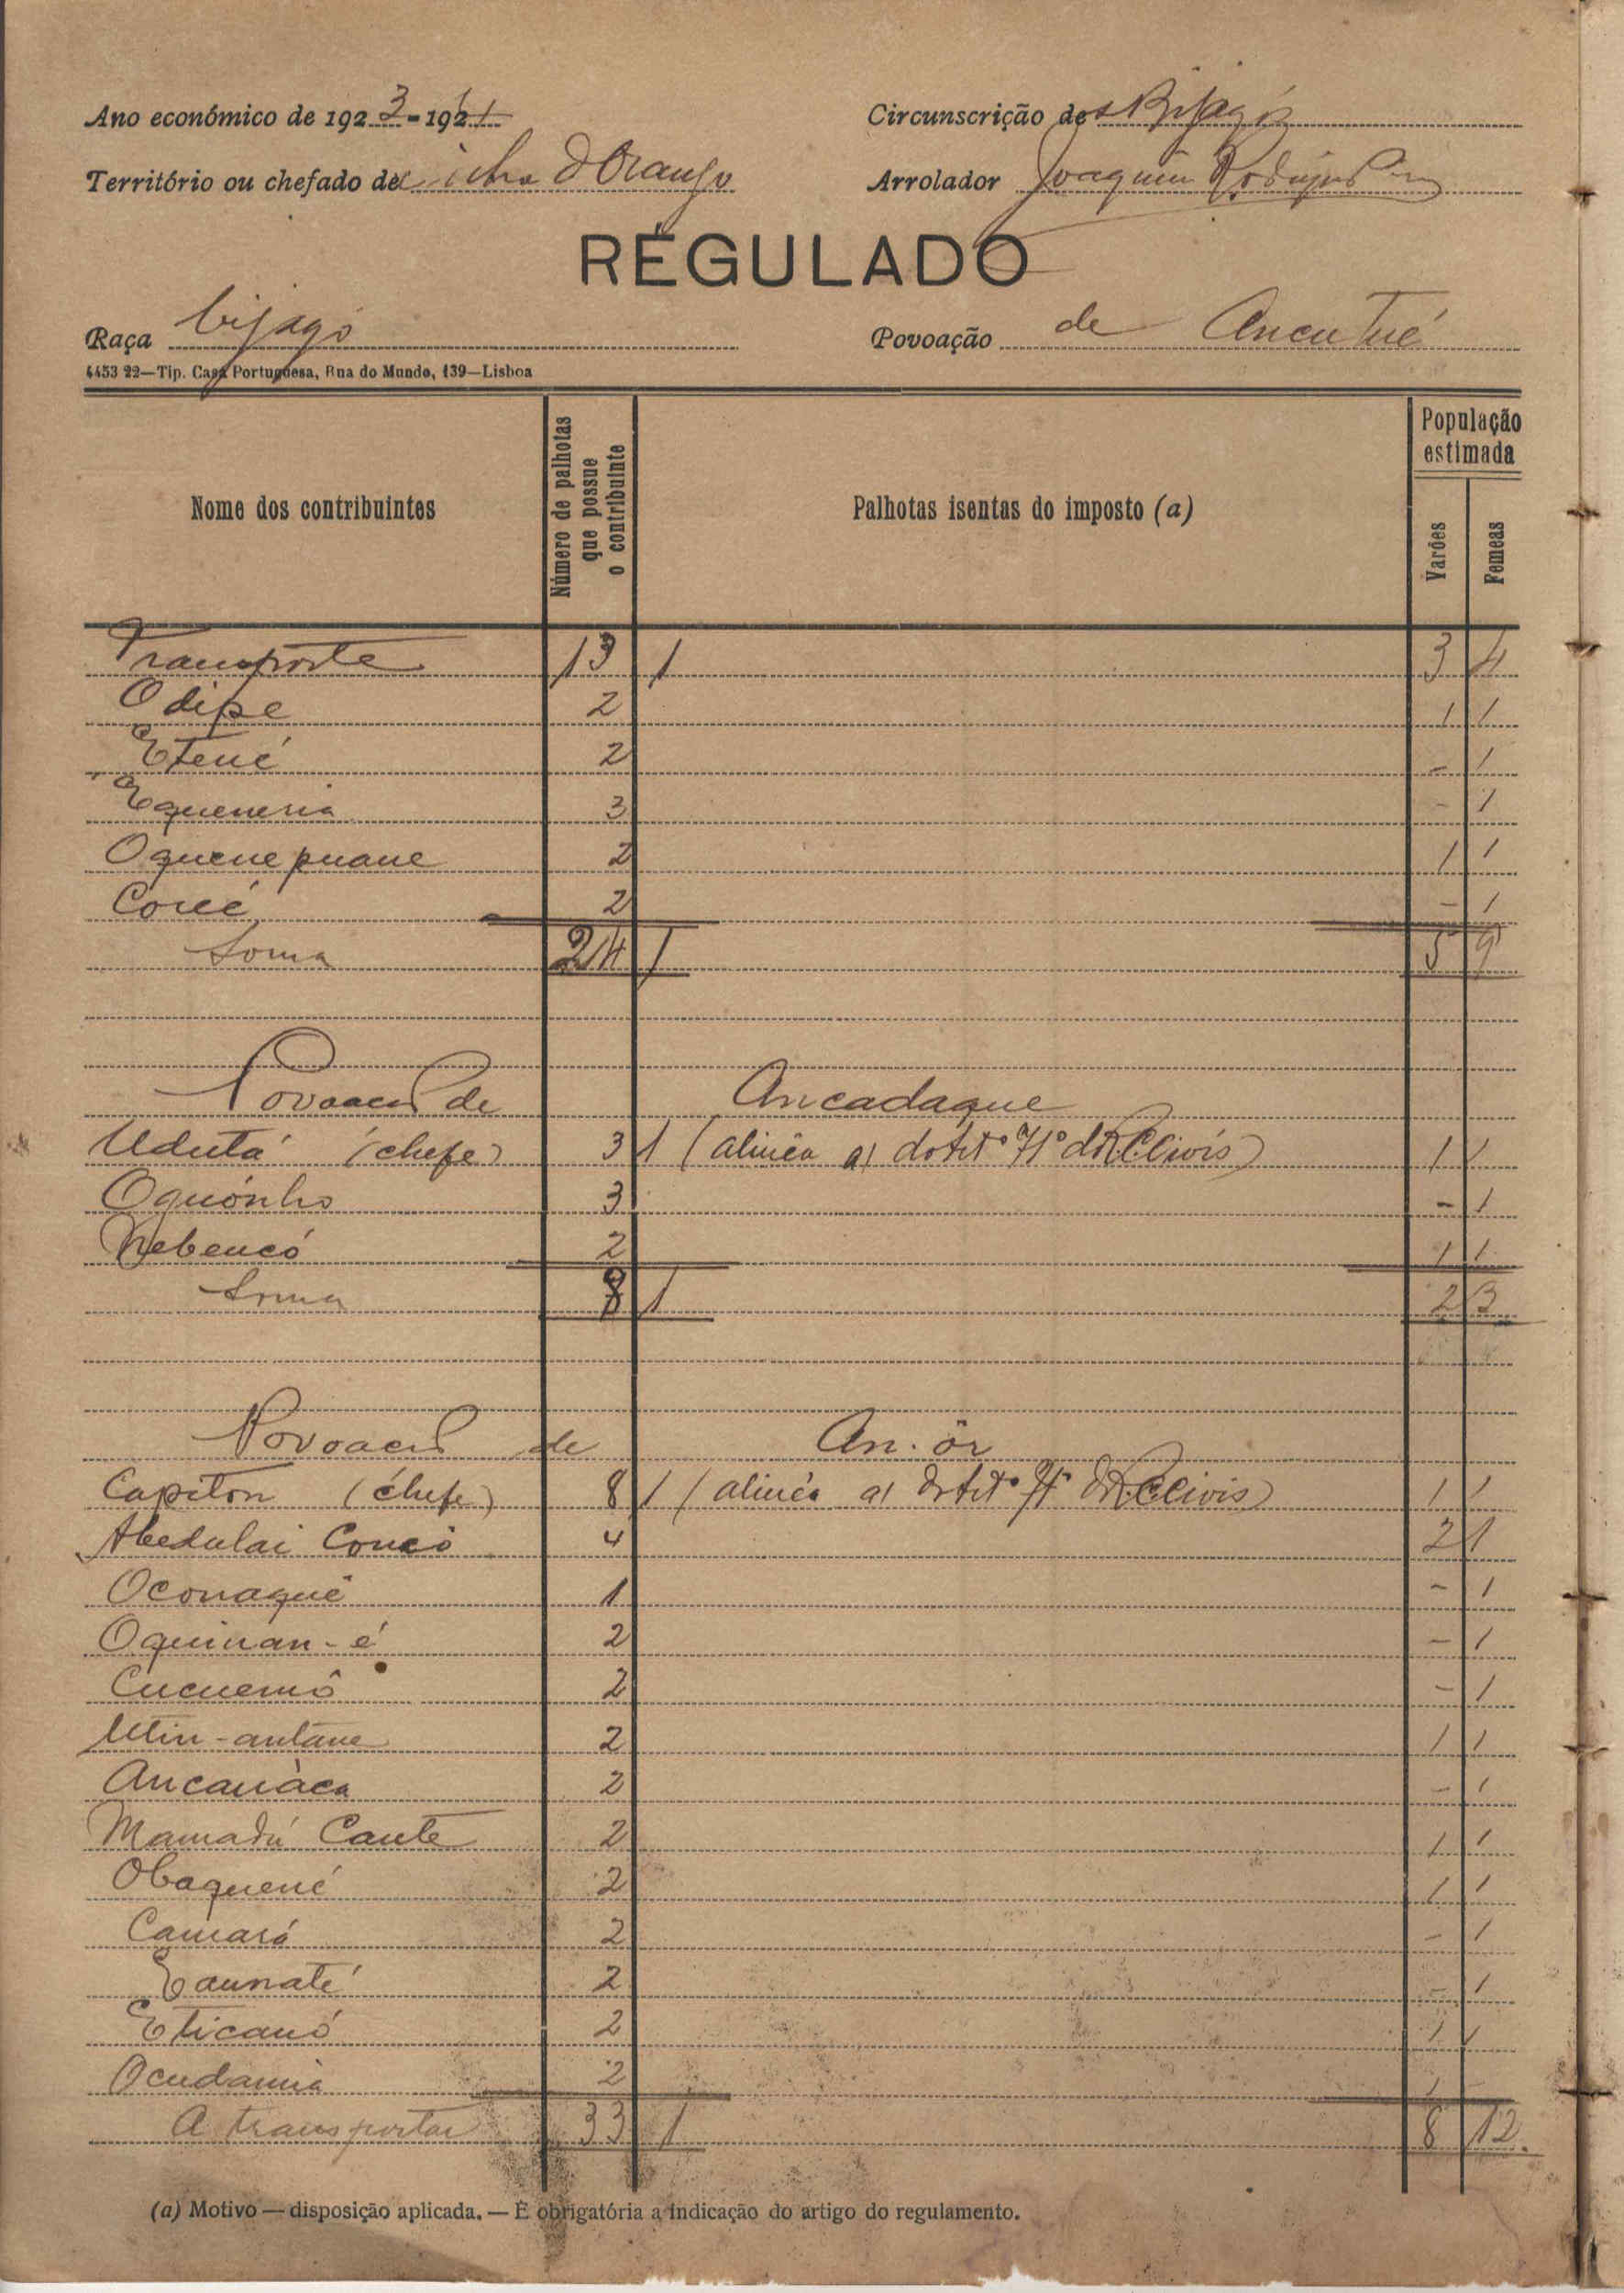 Ano económico de 1923-1924 Circunscrição dos Bijagós
Território ou chefado de ilha d'Orango Arrolador Joaquim Rodrigues
RÉGULADO
Raça bijagó Povoação de Ancutué
4453 22—Tip. Casa Portuguesa, Rua do Mundo, 139—Lisboa
Nome dos contribuintes Número de palhotas que possue o contribuinte Palhotas isentas do imposto (a) População estimada Varões Femeas
Transporte 13 1 3 4
Odipe 2 1 1
Etené 2 - 1
Equeneria 3 - 1
Oquenepuane 2 1 1
Coreé 2 - 1
Soma 24 1 5 9
Povoação de Ancadaque
Udutá (chefe) 3 1 (alinea a) do Artº 7º 1 1
Oquónho 3 - 1
Nebencó 2 1 1
Soma 8 1 2 3
Povoação de An-ôr
Capiton (chefe) 8 1 (alinea a) do Artº 7º 1 1
Abedulai 4 2 1
Oconaquê 1 - 1
Oquinan-é 2 - 1
Cucuemô 2 - 1
Utin-antane 2 1 1
Ancanàca 2 - 1
Mamadú Cante 2 1 1
Obaquené 2 1 1
Camará 2 - 1
Eaunaté 2 - 1
Eticanó 2 1 1
Ocudamia 2 1 -
A transportar 33 1 8 12.
(a) Motivo — disposição aplicada. — É obrigatória a indicação do artigo do regulamento.